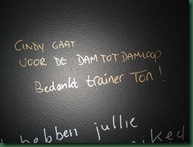 CINDY GAAT
VOOR DE DAMTOTDAMLOOP
Bedankt trainer Ton!
hebben jullie